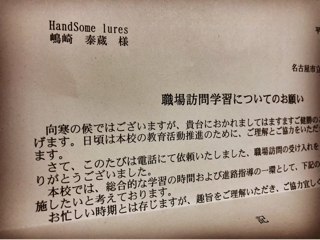 HandSome lures
嶋崎 泰蔵 様
名古屋市立
職場訪問学習についてのお願い
向寒の候ではございますが、貴台におかれましてはますますご健勝の
げます。日頃は本校の教育活動推進のために、ご理解とご協力をいただ
ます。
さて、このたびは電話にて依頼いたしました、職場訪問の受け入れを
りがとうございました。
本校では、総合的な学習の時間および進路指導の一環として、下記の
施したいと考えております。
お忙しい時期とは存じますが、趣旨をご理解いただき、ご協力宜しく